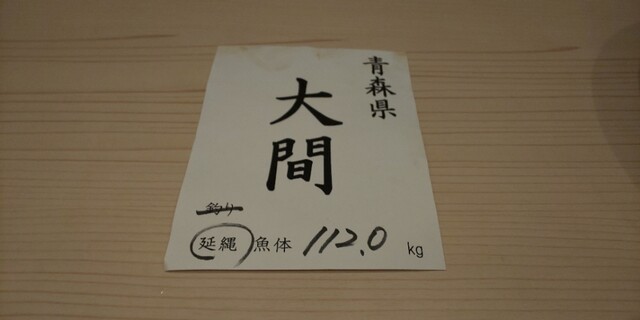 青森県
大間
釣り
延縄 魚体 112.0 kg